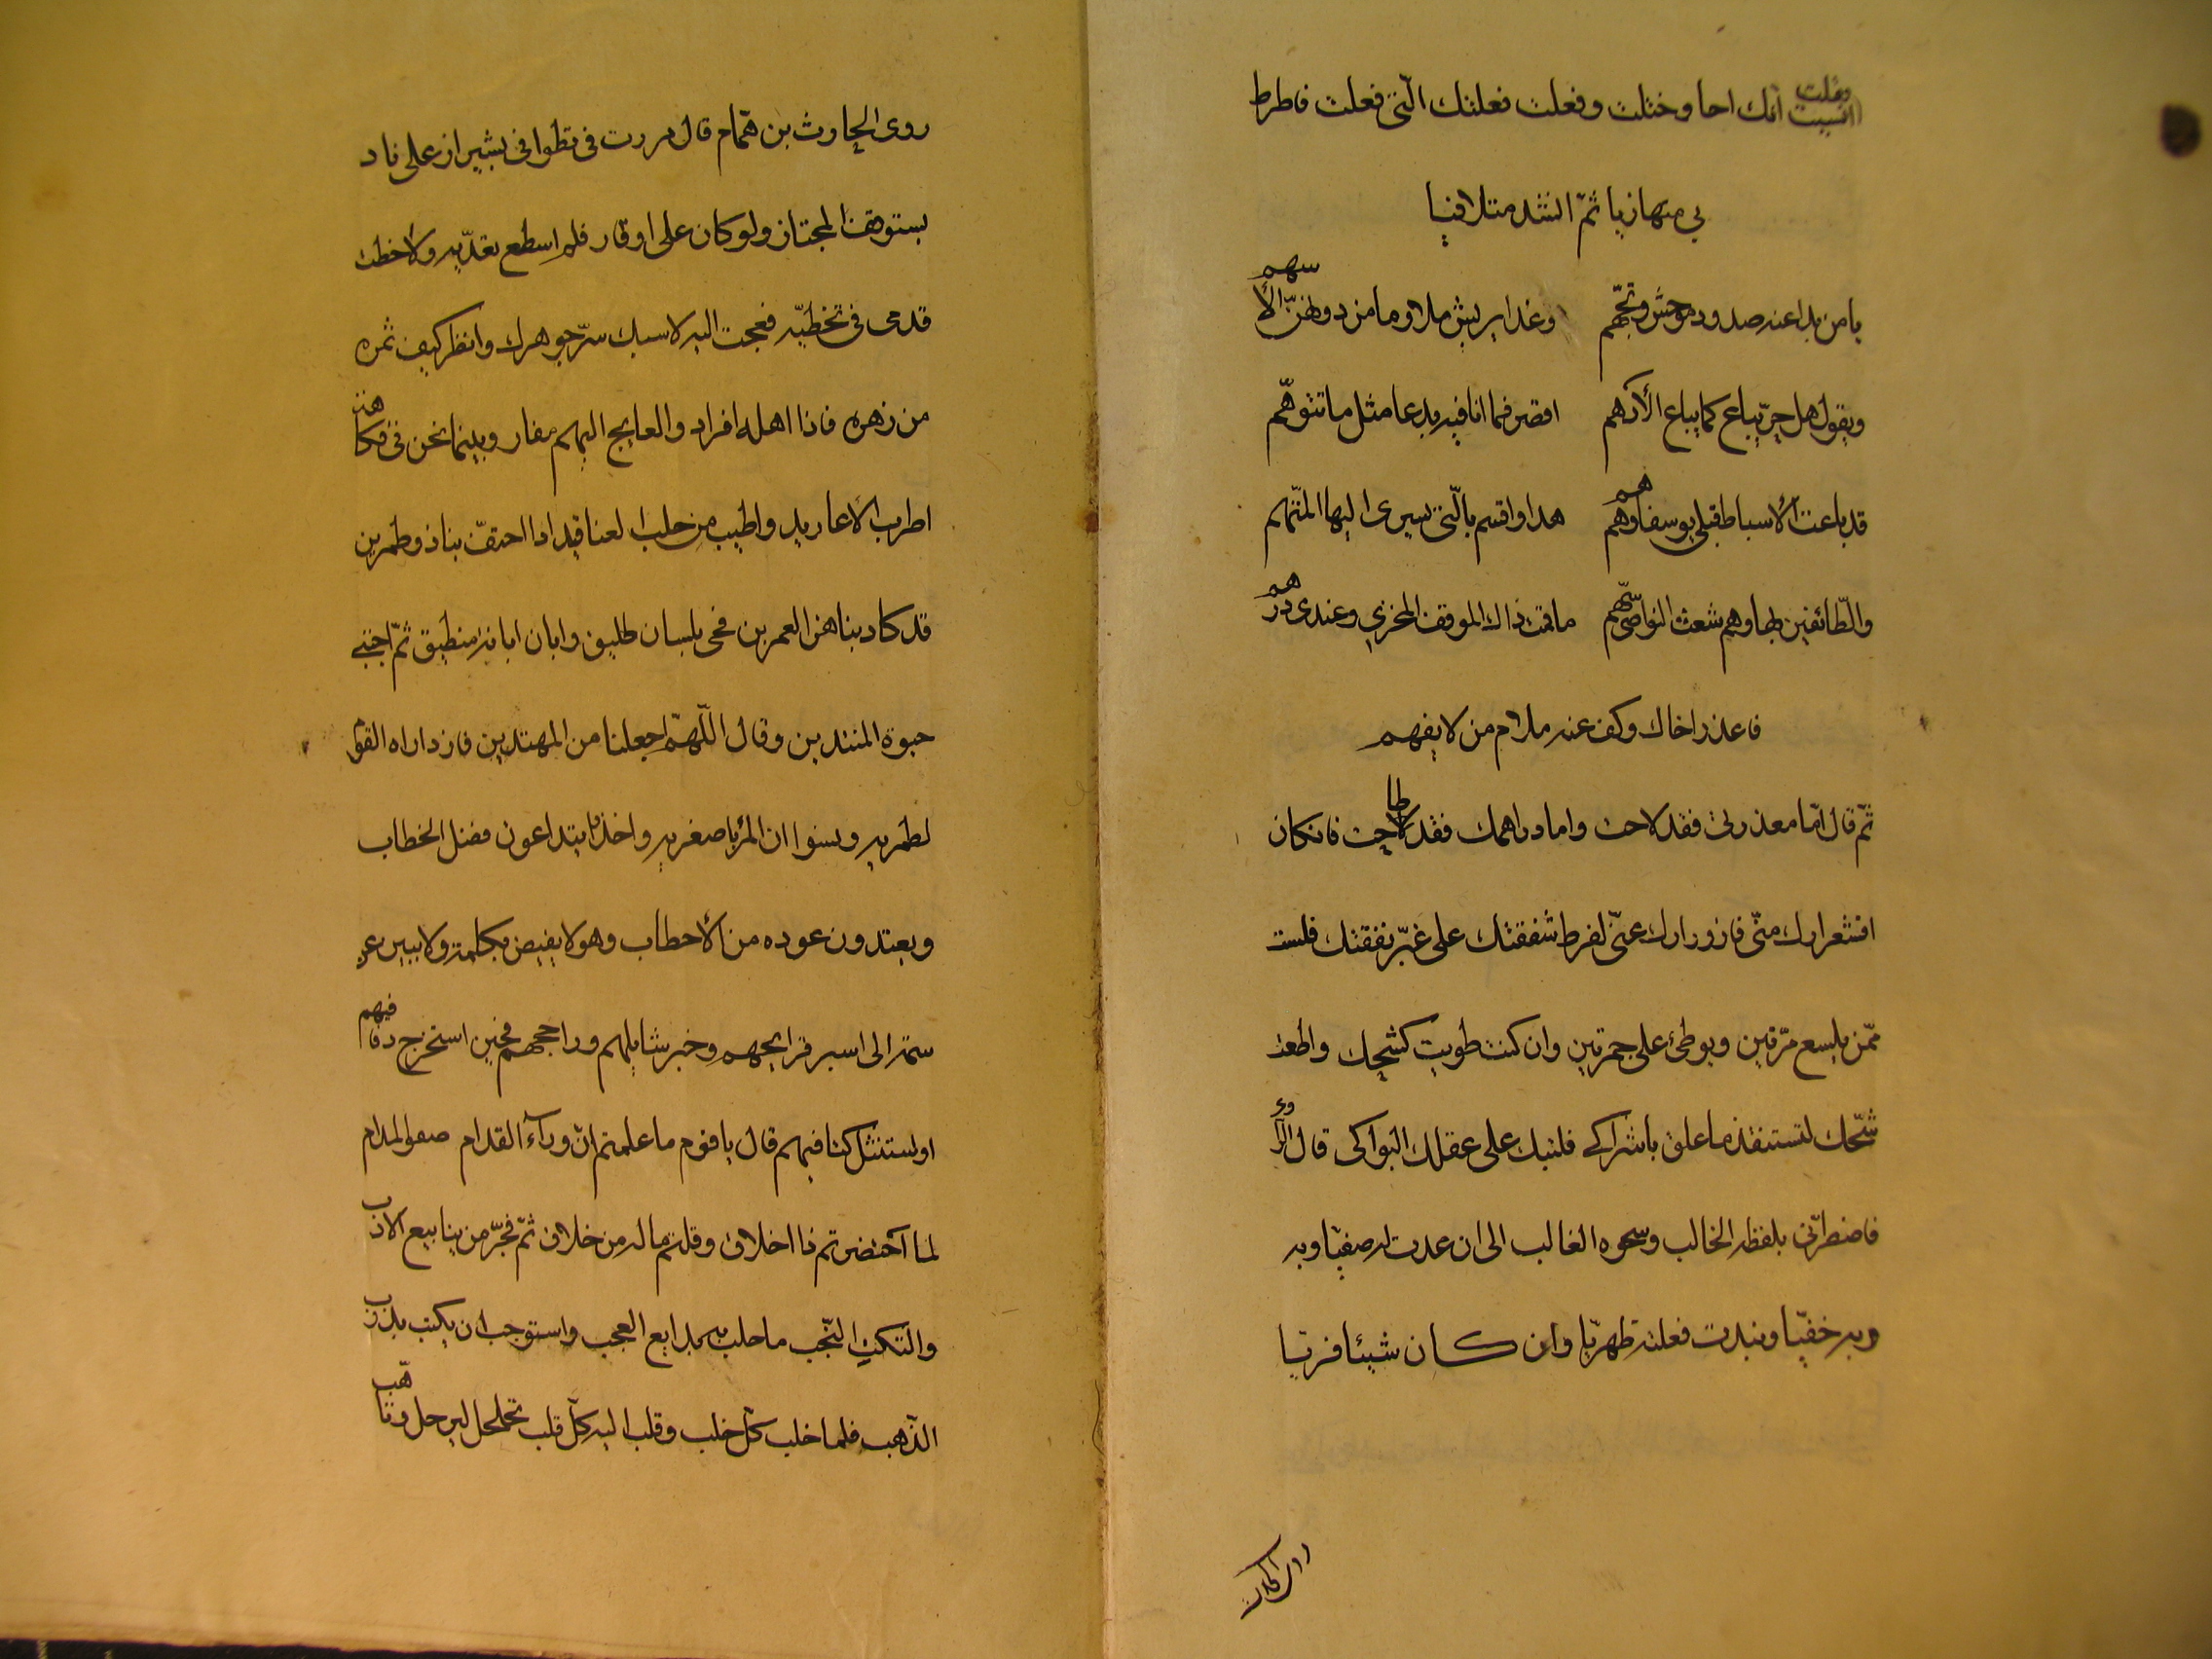 وقلت
انسيت انك احا وختلت وفعلت فعلتك الّتى فعلت فاطرط
بي متهازيا ثمّ انشد متلافيا
يا من بدا عنه صدود موحش وتجهّم وغدا يريش ملاوما من دونهنّ الأسهم
ويقول هل حرّ يباع كما يباع الأدهم اقصر فما انا فيه بدعا مثل ما تتوهّم
قد باعت الأسباط قبلى يوسفا وهم هم هذا واقسم بالّتى يسرى اليها المتّهم
والطّائفين بها وهم شعث النواصى سهّم ما قمت ذاك الموقف المخزي وعندى درهم
فاعذر اخاك وكف عنه ملام من لا يفهم
ثمّ قال امّا معذرتى فقد لاحت واما دراهمك فقد طاحت فان كان
اقشعرارك منّى فازورارك عنّى لفرط شفقتك على غبّر نفقتك فلست
ممّن يلسع مرّتين ويوطئ على جمرتين وان كنت طويت كشحك واطعت
شحّك لتستنقذ ما علق باشراكى فلتبك على عقلك البواكى قال الراوى
فاضطرّنى بلفظه الخالب وسحره الغالب الى ان عدت له صفيّا وبه
وبه خفيّا ونبذت فعلته ظهريّا وان كان شيئا فريّا
روى الحارث
روى الحارث بن همّام قال مررت فى تطوافى بشيراز على ناد
يستوقف المجتاز ولو كان على اوفاز فلم اسطع تعدّيه ولا خطت
قدمى فى تخطّيه فعجت اليه لاسبك سرّ جوهره وانظر كيف ثمره
من زهره فاذا اهله افراد والعايج اليهم مفاد وبينما نحن فى فكاهة
اطرب الاغاريد واطيب من حلب العناقيد اذا احتفّ بنا ذو طمرين
قد كاد يناهز العمرين فحى بلسان طليق وابان ابانة منطيق ثمّ احتبى
حبوة المنتدين وقال اللّهمّ اجعلنا من المهتدين فازدراه القوم
لطمريه ونسوا ان المرء باصغريه واخذوا يتداعون فصل الخطاب
ويعتدون عوده من الأحطاب وهو لا يفيض بكلمة ولا يبين عن
سمة الى ان سبر قرايحهم وخبر شايلهم وراجحهم فحين استخرج دفاينهم
واستنثل كنائنهم قال يا قوم ما علمتم انّ ورآء القدام صفو المدام
لما احتضرتم ذا اخلاق وقلتم ما له من خلاق ثمّ فجّر من ينابيع الادب
والنّكت النّخب ما جلب به بدايع العجب واستوجب ان يكتب بذوب
الذّهب فلما خلب كلّ خلب وقلب اليه كلّ قلب تحلحل ليرحل وتاهّب